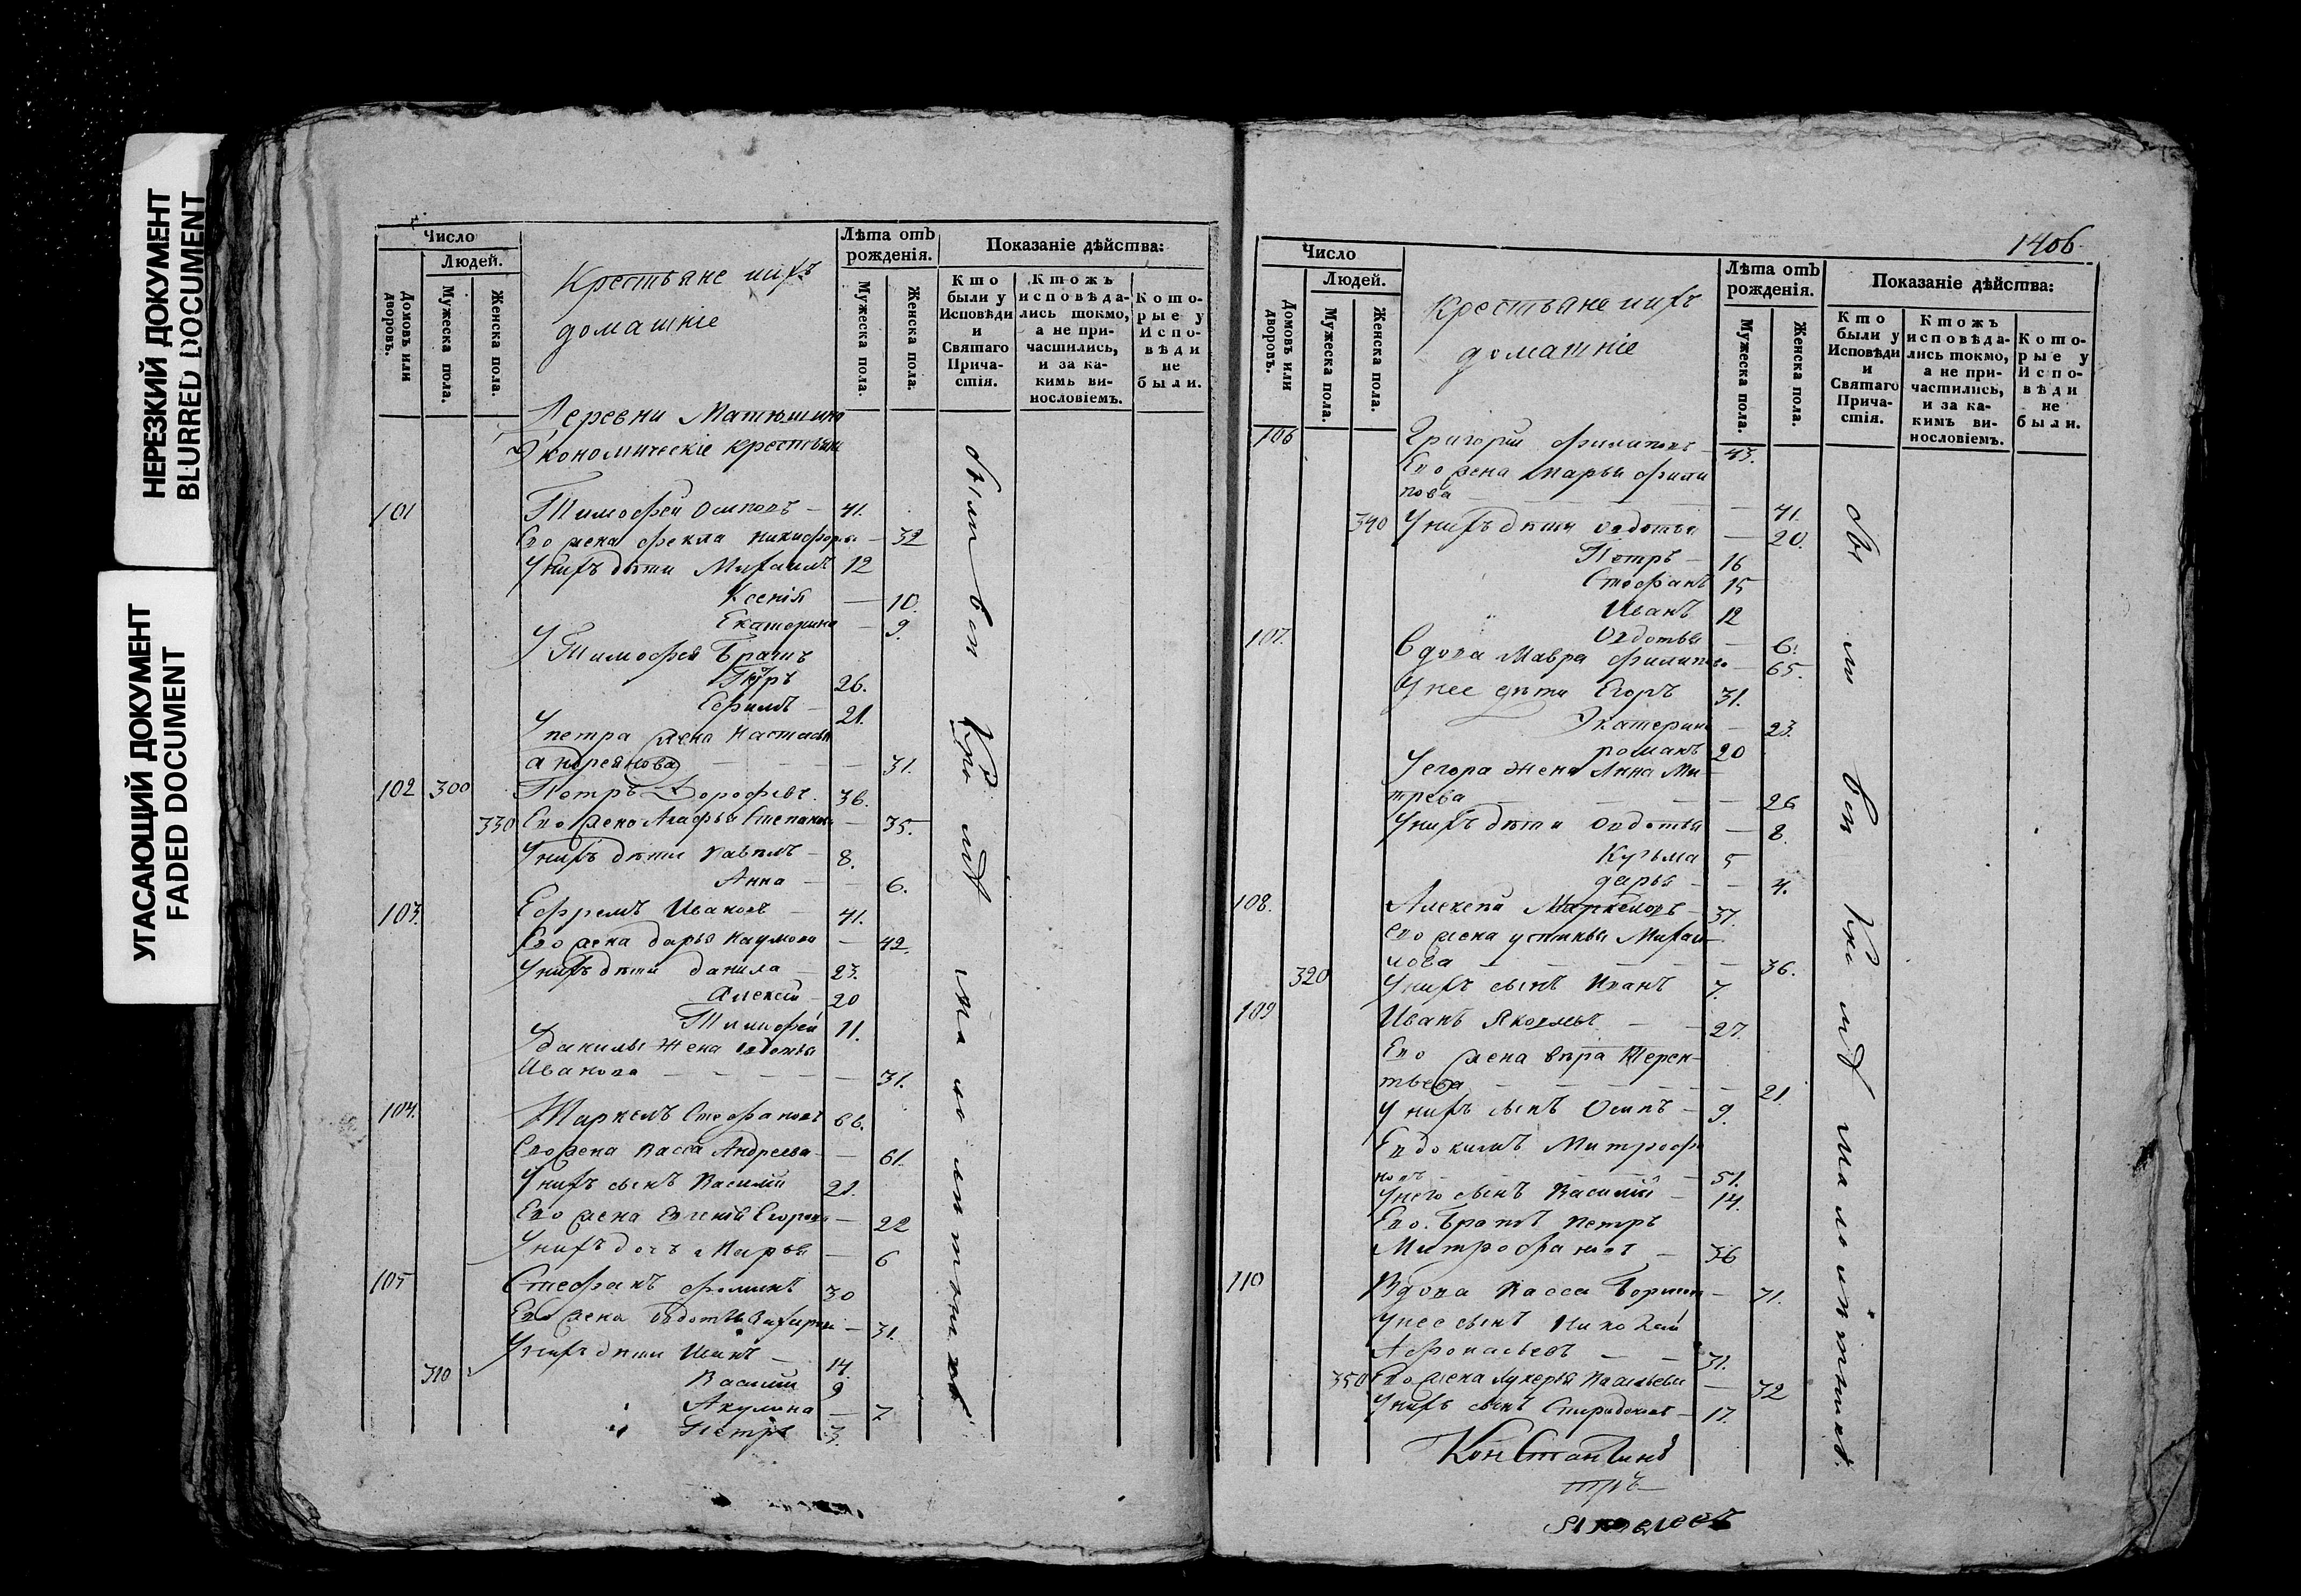 НЕРЕЗКИЙ ДОКУМЕНТ
BLURRED DOCUMENT
УГАСАЮЩИЙ ДОКУМЕНТ
FADED DOCUMENT
Число
Людей.
Домовъ или дворовъ.
Мужеска пола.
Женска пола.
Крестьяне ихъ
домашніе
Лѣта отъ рожденія.
Мужеска пола.
Женска пола.
Показаніе дѣйства:
Кто были у Исповѣди и Святаго Причастія.
Ктожъ исповѣдались токмо, а не причастились, и за какимъ винословіемъ.
Которые у Исповѣди не были.
Деревни Матюшино
Экономическіе крестьяни
101 Тимофей Осиповъ — 41.
Ево жена Фекла Никифорова — 32
У нихъ дѣти Михаилъ 12
Ксенія — 10.
Екатерина — 9.
У Тимофея Братья
Петръ 26.
Ефимъ — 21.
У Петра жена Настасья
Андреянова — 31.
102 300 Петръ Дорофеевъ 36.
330 Ево жена Агафья Степанова — 35.
У нихъ дѣти Павелъ — 8.
Анна — 6.
103. Ефремъ Ивановъ — 41.
Ево жена Дарья Наумова — 42.
У нихъ дѣти Данила — 23.
Алексей — 20
Тимофей 11.
У Данилы Жена Овдотья
Иванова — 31.
104. Маркелъ Стефановъ 66.
Ево жена Васса Андреева — 61.
У нихъ сынъ Василій 21.
Ево жена Евгенія Егорова — 22
У нихъ дочь Марья — 6
105 Стефанъ Фоминъ 30
Ево жена Овдотья — 31.
У нихъ дѣти Иванъ — 14.
310 Василій 9
Акулина — 7
Петръ 3.
были вси Кромѣ малолѣтныхъ
1406.
Число
Людей.
Домовъ или дворовъ.
Мужеска пола.
Женска пола.
Крестьяне ихъ
домашніе
Лѣта отъ рожденія.
Мужеска пола.
Женска пола.
Показаніе дѣйства:
Кто были у Исповѣди и Святаго Причастія.
Ктожъ исповѣдались токмо, а не причастились, и за какимъ винословіемъ.
Которые у Исповѣди не были.
106 Григорій Филиповъ — 43.
Ево жена Марья Фили
пова — 41.
340 У нихъ дѣти Овдотья — 20.
Петръ — 16
Стефанъ 15
Иванъ 12
Овдотья — 6.
107. Вдова Мавра Филипова — 65.
У нее дѣти Егоръ 31.
Экатерина — 23.
Романъ 20
У Егора жена Анна Ми-
трева — 26
У нихъ дѣти Овдотья — 8.
Кузьма 5
Дарья — 4.
108. Алексей Маркеловъ — 37.
Ево жена Устинья Михаи-
лова — 36.
320 У нихъ сынъ Иванъ 7.
109 Иванъ Яковлевъ — 27.
Ево жена Вѣра Терен-
тьева — 21.
У нихъ сынъ Осипъ — 9.
Евдокимъ Митрофа
новъ — 51.
У него сынъ Василій — 14.
Ево братъ Петръ
Митрофановъ — 36
110 Вдова Васса — 71.
У нее сынъ Николай
Афонасьевъ — 31.
350 Ево жена Лукерья Васильева — 32
У нихъ сынъ Спиридонъ — 17.
были вси Кромѣ малолѣтныхъ.
Константинъ
Яковлевъ